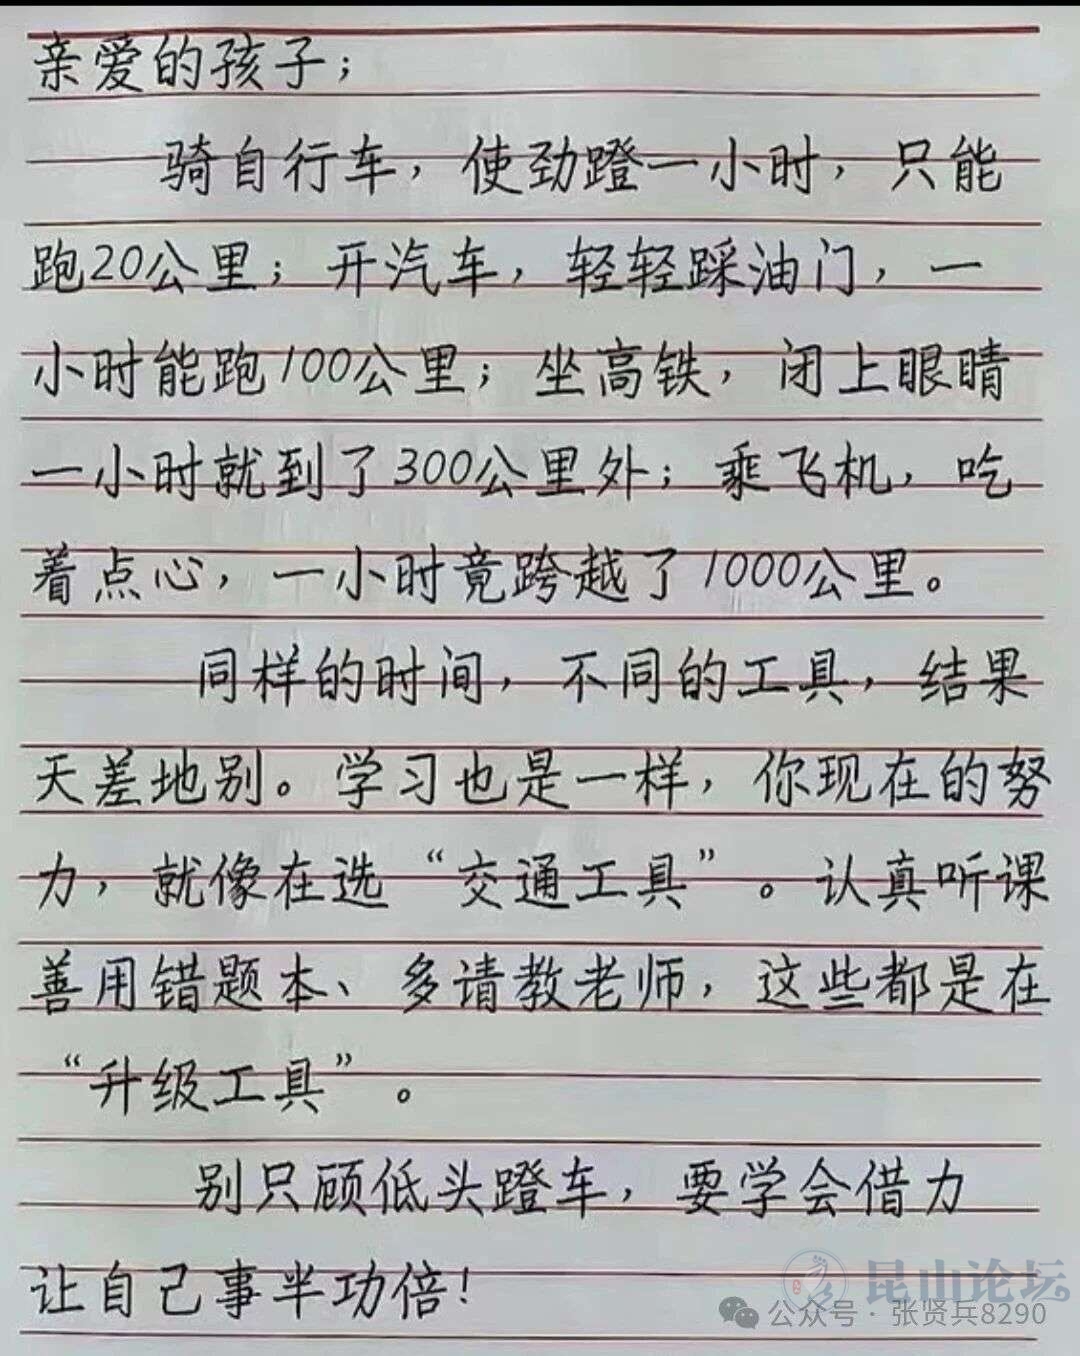 亲爱的孩子；
骑自行车，使劲蹬一小时，只能
跑20公里；开汽车，轻轻踩油门，一
小时能跑100公里；坐高铁，闭上眼睛
一小时就到了300公里外；乘飞机，吃
着点心，一小时竟跨越了1000公里。
同样的时间，不同的工具，结果
天差地别。学习也是一样，你现在的努
力，就像在选“交通工具”。认真听课
善用错题本、多请教老师，这些都是在
“升级工具”。
别只顾低头蹬车，要学会借力
让自己事半功倍！
昆山论坛
公众号·张贤兵8290